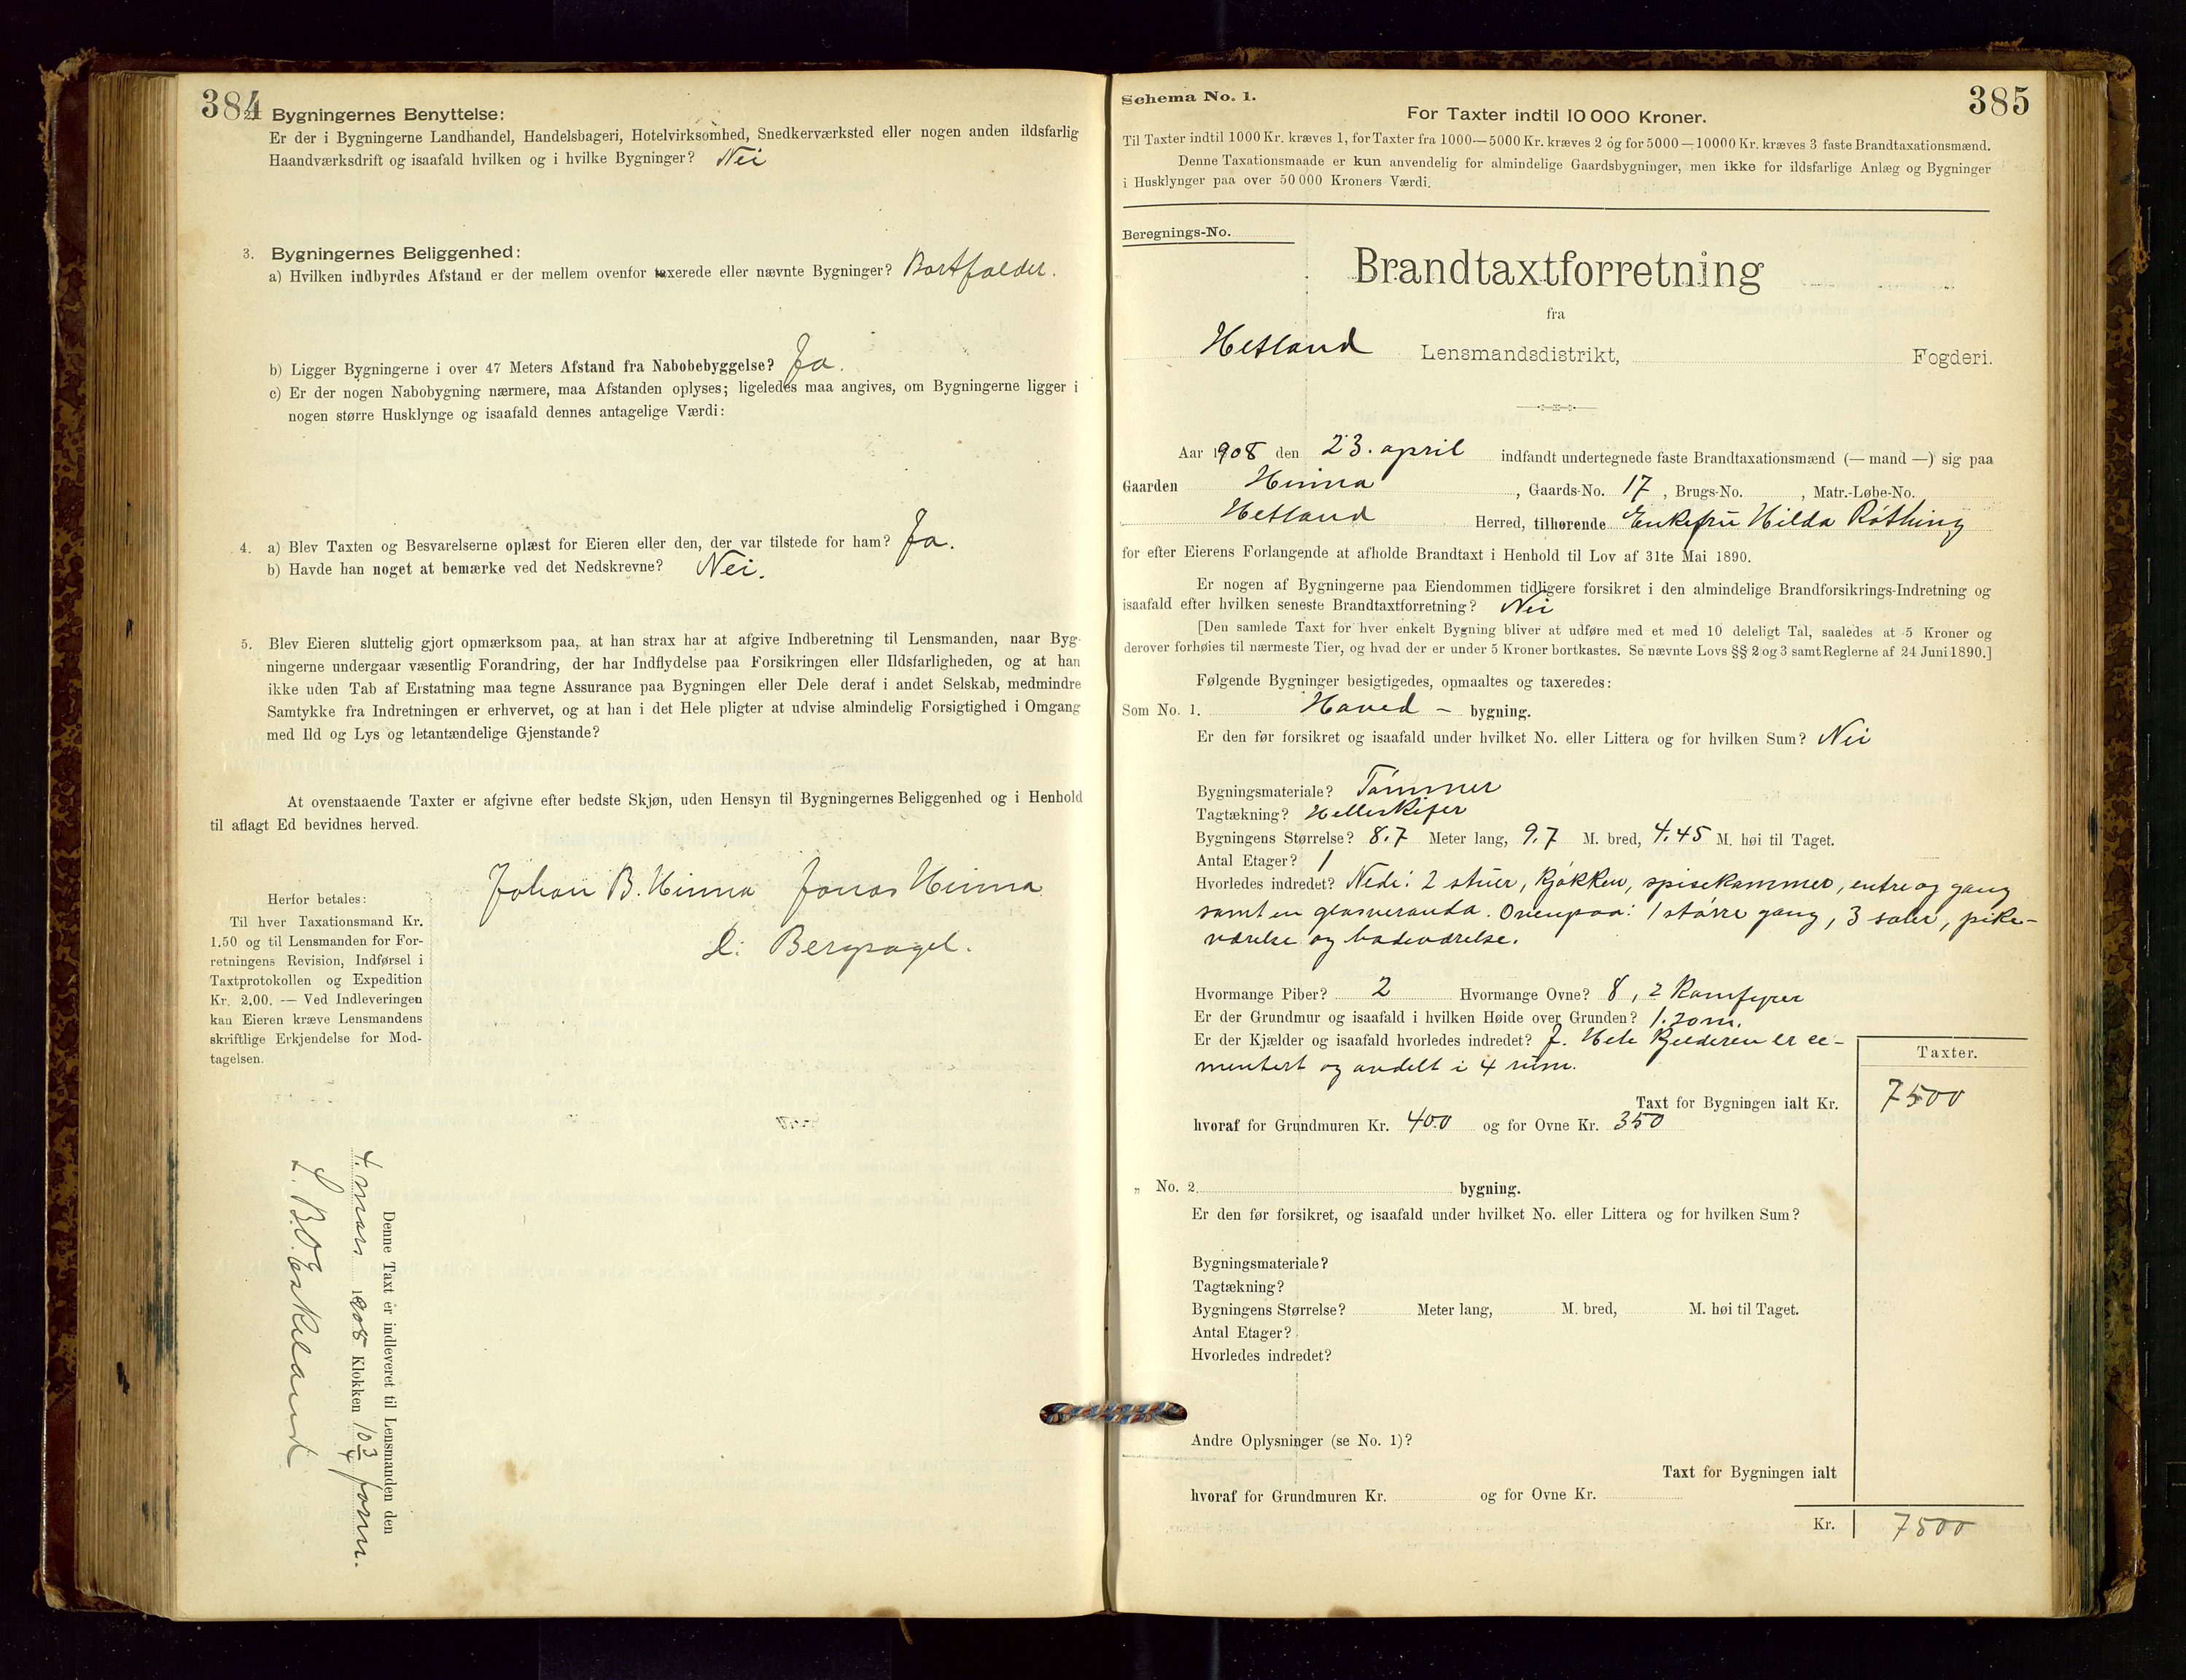 384
Bygningernes Benyttelse:
Er der i Bygningerne Landhandel, Handelsbageri, Hotelvirksomhed, Snedkerværksted eller nogen anden ildsfarlig
Haandværksdrift og isaafald hvilken og i hvilke Bygninger? Nei
3. Bygningernes Beliggenhed:
a) Hvilken indbyrdes Afstand er der mellem ovenfor taxerede eller nævnte Bygninger? Bortfalder.
b) Ligger Bygningerne i over 47 Meters Afstand fra Nabobebyggelse? Ja.
c) Er der nogen Nabobygning nærmere, maa Afstanden oplyses; ligeledes maa angives, om Bygningerne ligger i
nogen større Husklynge og isaafald dennes antagelige Værdi:
4. a) Blev Taxten og Besvarelserne oplæst for Eieren eller den, der var tilstede for ham? Ja.
b) Havde han noget at bemærke ved det Nedskrevne? Nei.
5. Blev Eieren sluttelig gjort opmærksom paa, at han strax har at afgive Indberetning til Lensmanden, naar Byg-
ningerne undergaar væsentlig Forandring, der har Indflydelse paa Forsikringen eller Ildsfarligheden, og at han
ikke uden Tab af Erstatning maa tegne Assurance paa Bygningen eller Dele deraf i andet Selskab, medmindre
Samtykke fra Indretningen er erhvervet, og at han i det Hele pligter at udvise almindelig Forsigtighed i Omgang
med Ild og Lys og letantændelige Gjenstande?
At ovenstaaende Taxter er afgivne efter bedste Skjøn, uden Hensyn til Bygningernes Beliggenhed og i Henhold
til aflagt Ed bevidnes herved.
Johan B. Hinna Jonas Hinna
L. Bergsagel.
Herfor betales:
Til hver Taxationsmand Kr.
1.50 og til Lensmanden for For-
retningens Revision, Indførsel i
Taxtprotokollen og Expedition
Kr. 2.00. — Ved Indleveringen
kan Eieren kræve Lensmandens
skriftlige Erkjendelse for Mod-
tagelsen.
Denne Taxt er indleveret til Lensmanden den
4. mars 1908 Klokken 10 3/4 form.
L. B. O. Eskeland
385
Schema No. 1.
For Taxter indtil 10 000 Kroner.
Til Taxter indtil 1000 Kr. kræves 1, for Taxter fra 1000—5000 Kr. kræves 2 og for 5000—10000 Kr. kræves 3 faste Brandtaxationsmænd.
Denne Taxationsmaade er kun anvendelig for almindelige Gaardsbygninger, men ikke for ildsfarlige Anlæg og Bygninger
i Husklynger paa over 50 000 Kroners Værdi.
Beregnings-No.
Brandtaxtforretning
fra
Hetland Lensmandsdistrikt, Fogderi.
Aar 1908 den 23. april indfandt undertegnede faste Brandtaxationsmænd (— mand —) sig paa
Gaarden Hinna, Gaards-No. 17, Brugs-No. , Matr.-Løbe-No.
Hetland Herred, tilhørende Enkefru Hilda Røthing
for efter Eierens Forlangende at afholde Brandtaxt i Henhold til Lov af 31te Mai 1890.
Er nogen af Bygningerne paa Eiendommen tidligere forsikret i den almindelige Brandforsikrings-Indretning og
isaafald efter hvilken seneste Brandtaxtforretning? Nei
[Den samlede Taxt for hver enkelt Bygning bliver at udføre med et med 10 deleligt Tal, saaledes at 5 Kroner og
derover forhøies til nærmeste Tier, og hvad der er under 5 Kroner bortkastes. Se nævnte Lovs §§ 2 og 3 samt Reglerne af 24 Juni 1890.]
Følgende Bygninger besigtigedes, opmaaltes og taxeredes:
Som No. 1. Hoved - bygning.
Er den før forsikret og isaafald under hvilket No. eller Littera og for hvilken Sum? Nei
Bygningsmateriale? Tømmer
Tagtækning? Helleskifer
Bygningens Størrelse? 8.7 Meter lang, 9.7 M. bred, 4.45 M. høi til Taget.
Antal Etager? 1
Hvorledes indredet? Nede: 2 stuer, kjøkken, spisekammer, entre og gang
samt en glasveranda. Ovenpaa: 1 større gang, 3 saler, pike-
værelse og badeværelse.
Hvormange Piber? 2 Hvormange Ovne? 8, 2 Komfyrer
Er der Grundmur og isaafald i hvilken Høide over Grunden? 1.20 m.
Er der Kjælder og isaafald hvorledes indredet? J. Hele Kjelderen er ce-
mentert og avdelt i 4 rum.
Taxter.
Taxt for Bygningen ialt Kr. 7500
hvoraf for Grundmuren Kr. 400 og for Ovne Kr. 350
„ No. 2. bygning.
Er den før forsikret, og isaafald under hvilket No. eller Littera og for hvilken Sum?
Bygningsmateriale?
Tagtækning?
Bygningens Størrelse? Meter lang, M. bred, M. høi til Taget.
Antal Etager?
Hvorledes indredet?
Andre Oplysninger (se No. 1)?
Taxt for Bygningen ialt
hvoraf for Grundmuren Kr. og for Ovne Kr.
Kr. 7500